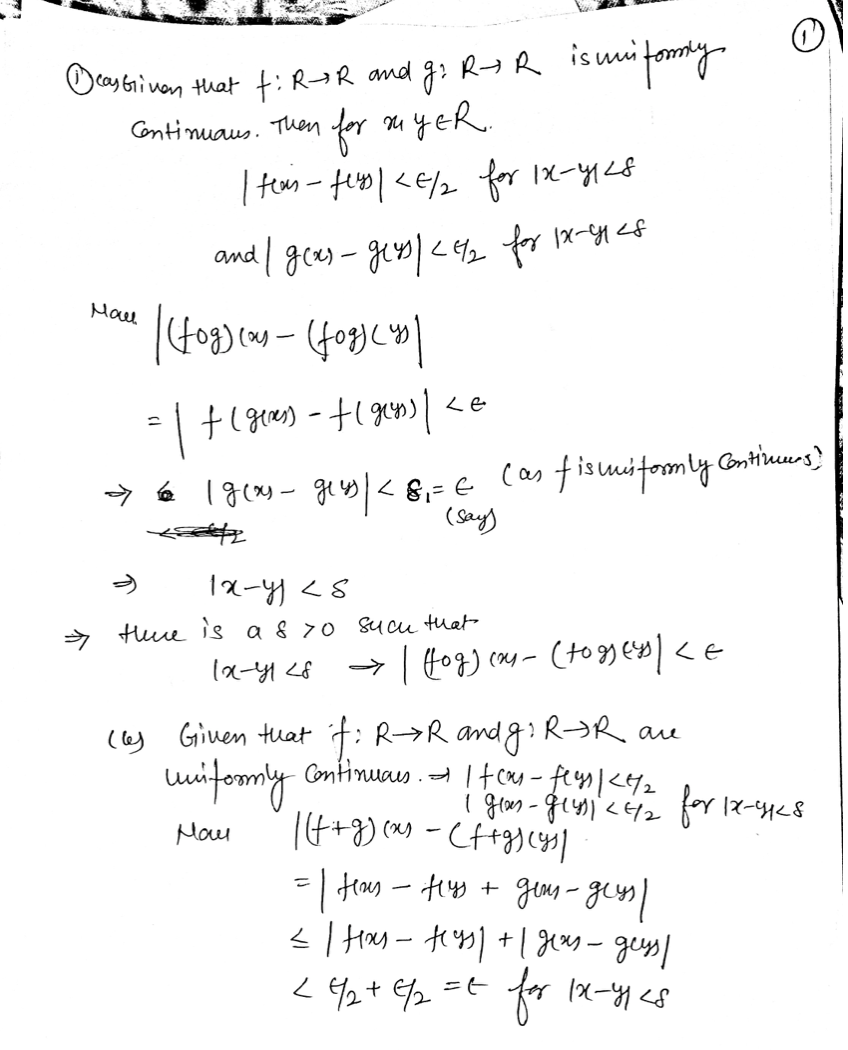 ①
① (a) Given that f: R→R and g: R→R is uniformly
Continuous. Then for x, y ∈ R.
|f(x) - f(y)| < ε/2 for |x-y| < δ
and |g(x) - g(y)| < ε/2 for |x-y| < δ
Now |(fog)(x) - (fog)(y)|
= |f(g(x)) - f(g(y))| < ε
⇒ |g(x) - g(y)| < δ₁ = ε (as f is uniformly Continuous)
(say)
⇒ |x-y| < δ
⇒ there is a δ > 0 such that
|x-y| < δ ⇒ |(fog)(x) - (fog)(y)| < ε
(b) Given that f: R→R and g: R→R are
uniformly Continuous. ⇒ |f(x) - f(y)| < ε/2
|g(x) - g(y)| < ε/2 for |x-y| < δ
Now |(f+g)(x) - (f+g)(y)|
= |f(x) - f(y) + g(x) - g(y)|
≤ |f(x) - f(y)| + |g(x) - g(y)|
< ε/2 + ε/2 = ε for |x-y| < δ